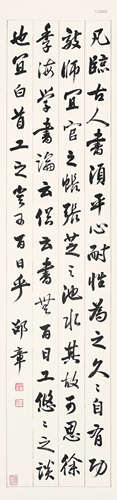 凡臨古人書須平心耐性為之久久自有功
效師宜官之帳張芝之池水其故可思徐
季海學書論云俗云書無百日工悠悠之談
也宜白首工之豈可百日乎 邵章